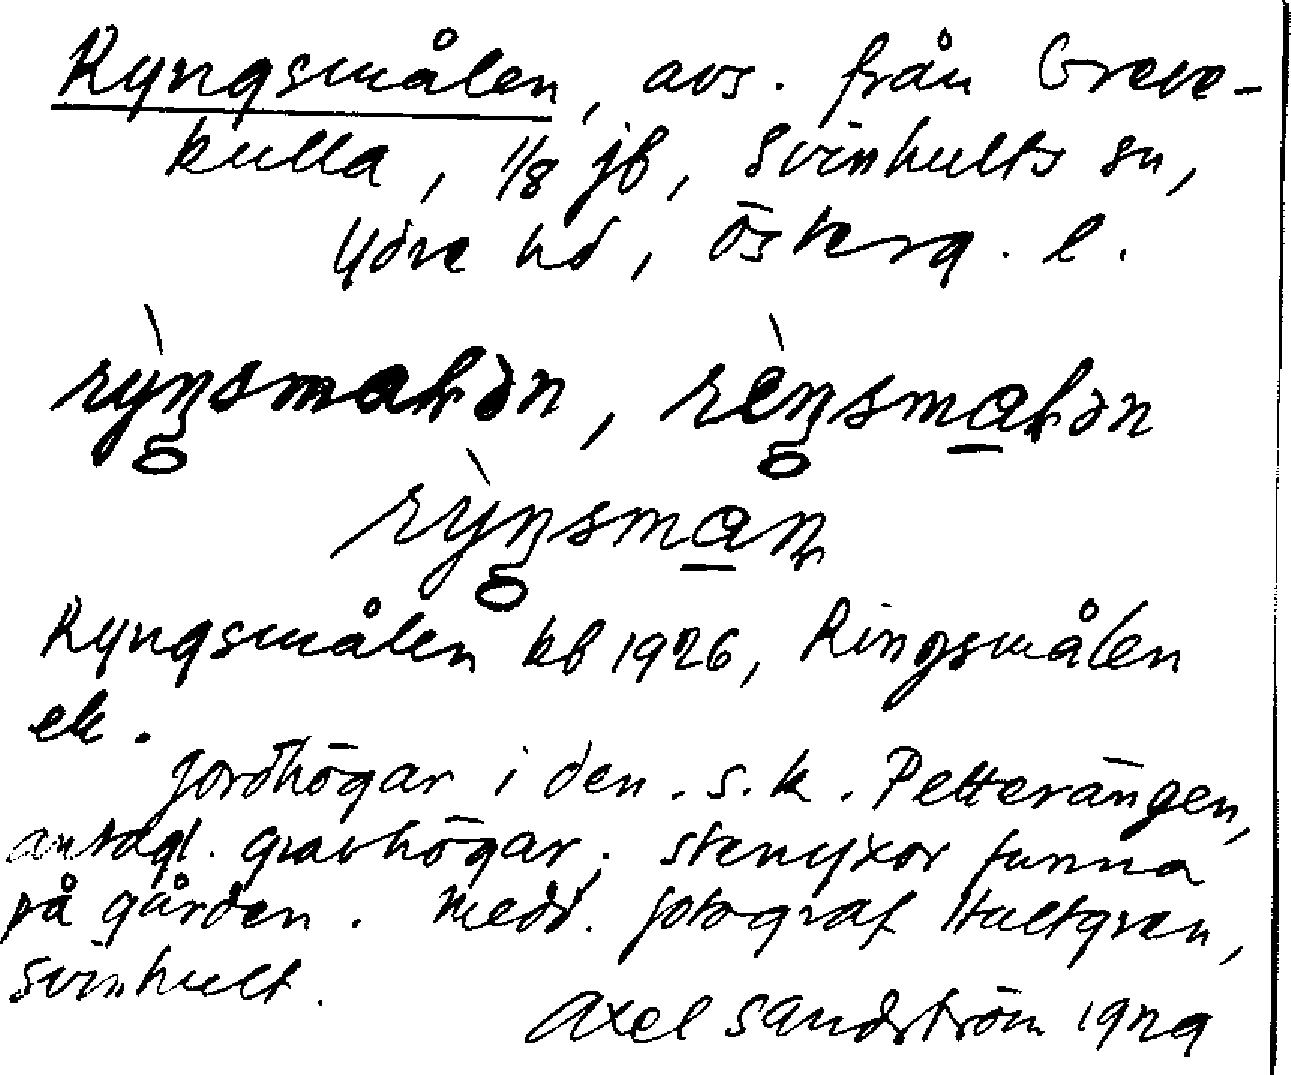 Ryngsmålen, avs. från Greve-
kulla, 1/8 jb, Svinhults sn,
Ydre hd, Österg. l.
rỳŋsmaɫən, rèŋsmaɫən
rỳŋsman
Ryngsmålen kb 1926, Ringsmålen
ek.
Jordhögar i den. s.k. Petterängen,
antagl. gravhögar; stenyxor funna
på gården. Medd. fotograf Hultgren,
Svinhult.
Axel Sandström 1929